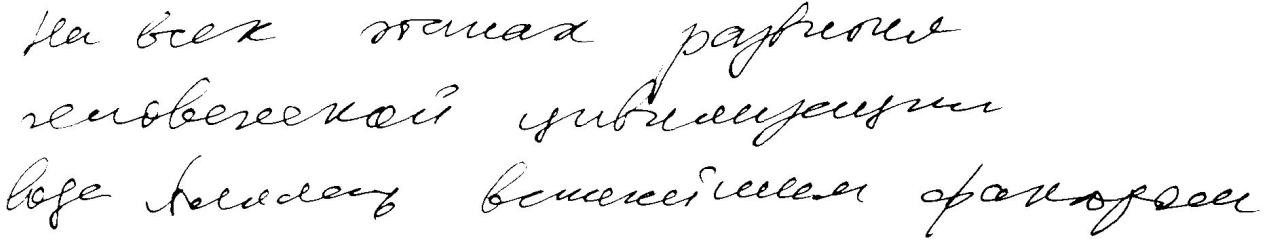 На всех этапах развития
человеческой цивилизации
вода являлась важнейшим фактором